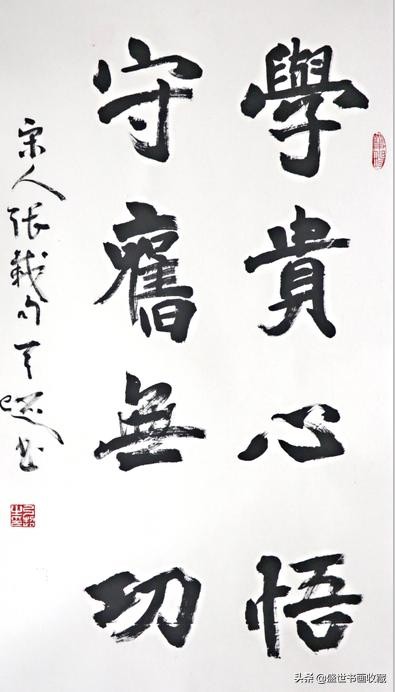 學貴心悟
守舊無功
宋人張載句
書
头条@盛世书画收藏